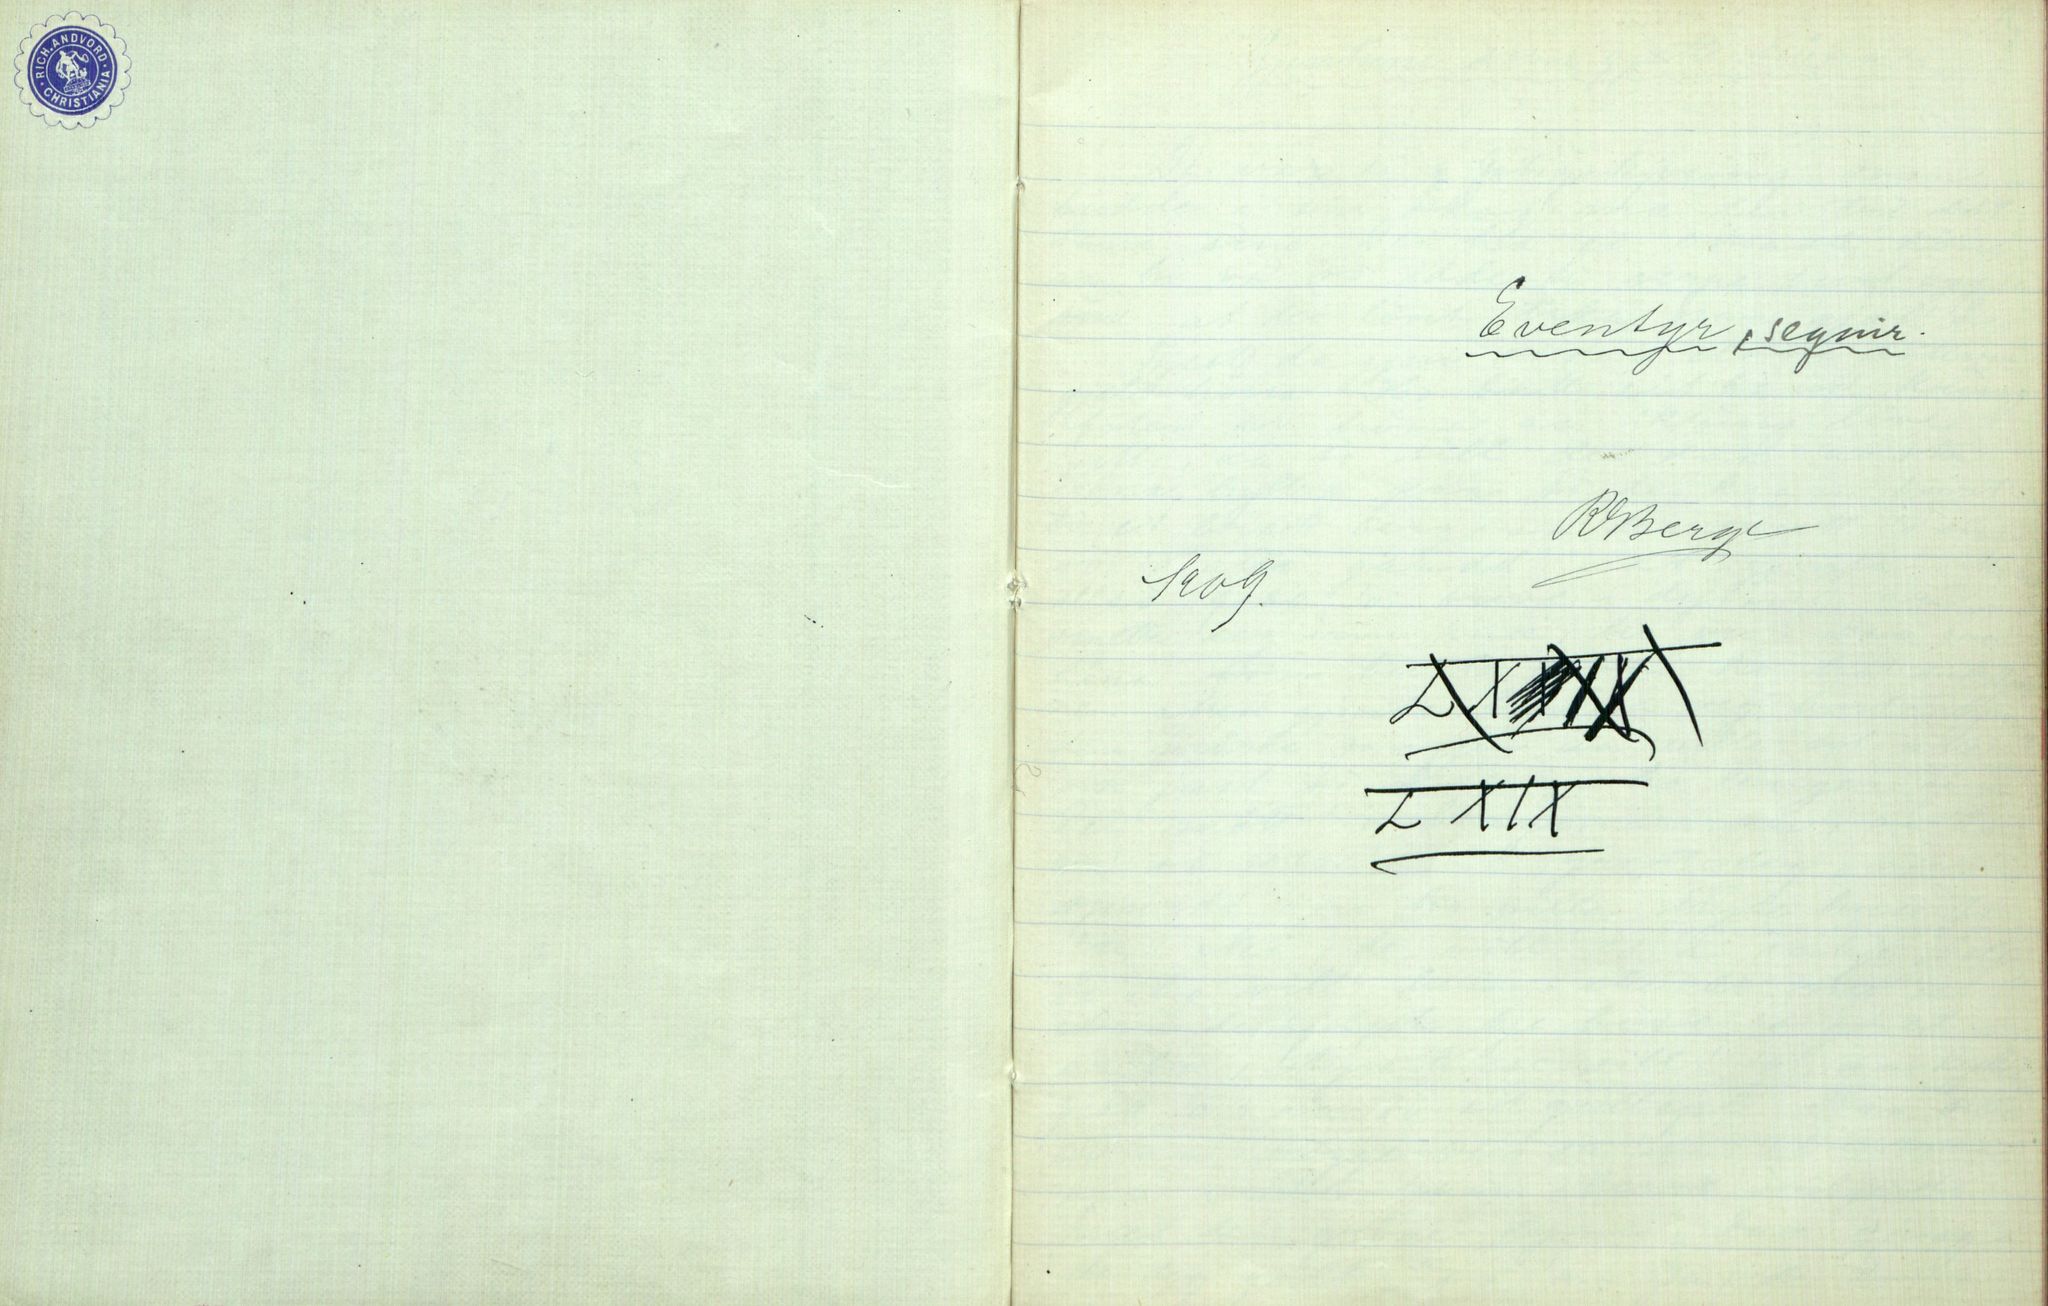 RICH. ANDVORD · CHRISTIANIA ·
Eventyr, segnir.
RBerge
1909.
LXIX